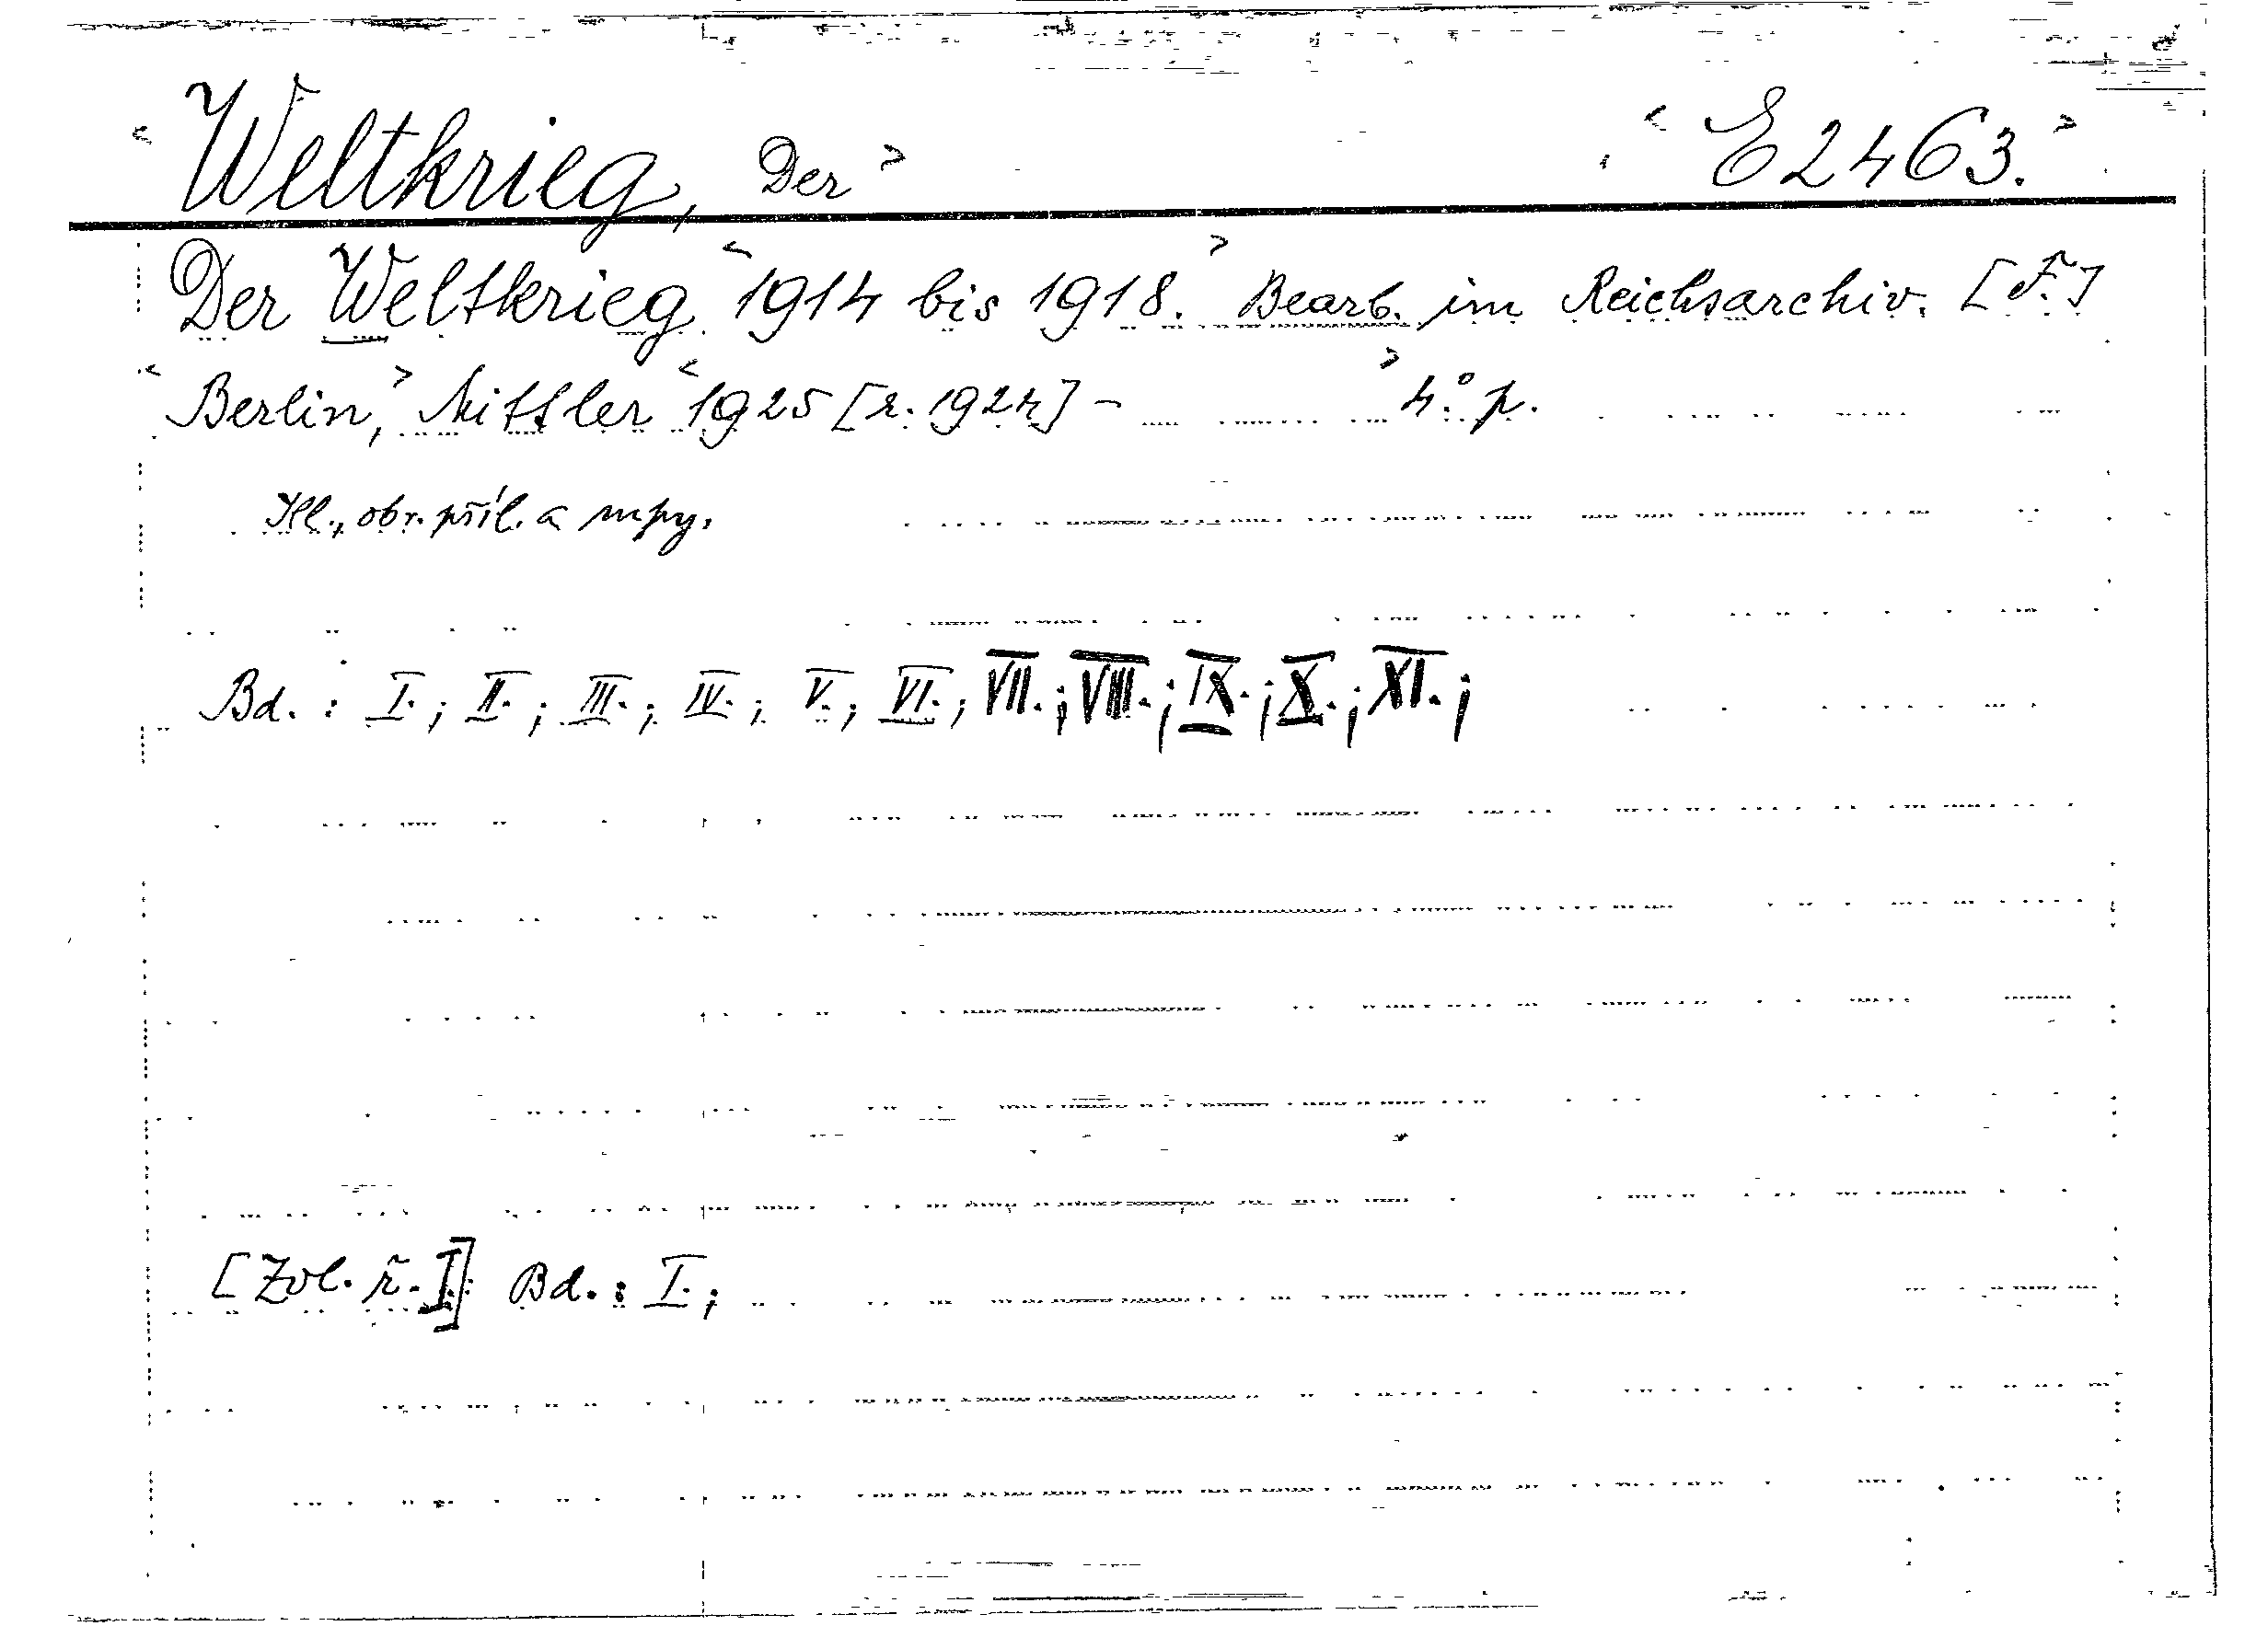 < Weltkrieg, Der > < E 2463. >
Der Weltkrieg < 1914 bis 1918. > Bearb. im Reichsarchiv. [F.]
< Berlin, > Mittler < 1925 [r. 1924] – > 4° p.
Ill., obr. příl. a mpy.
Bd. : I. ; II. ; III. ; IV. ; V. ; VI. ; VII. ; VIII. ; IX. ; X. ; XI. ;
[Zvl. ř. I] : Bd. : I. ;